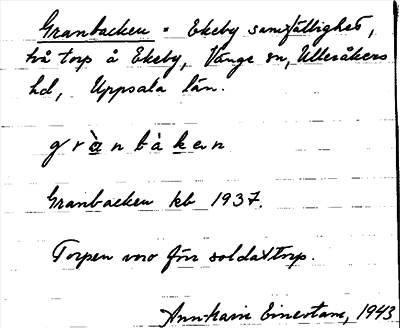 Granbacken = Ekeby samfällighet,
två torp å Ekeby, Vänge sn, Ulleråkers
hd, Uppsala län.
grànbàken
Granbacken kb 1937.
Torpen voro förr soldattorp.
Ann-Karin Einerstam, 1943